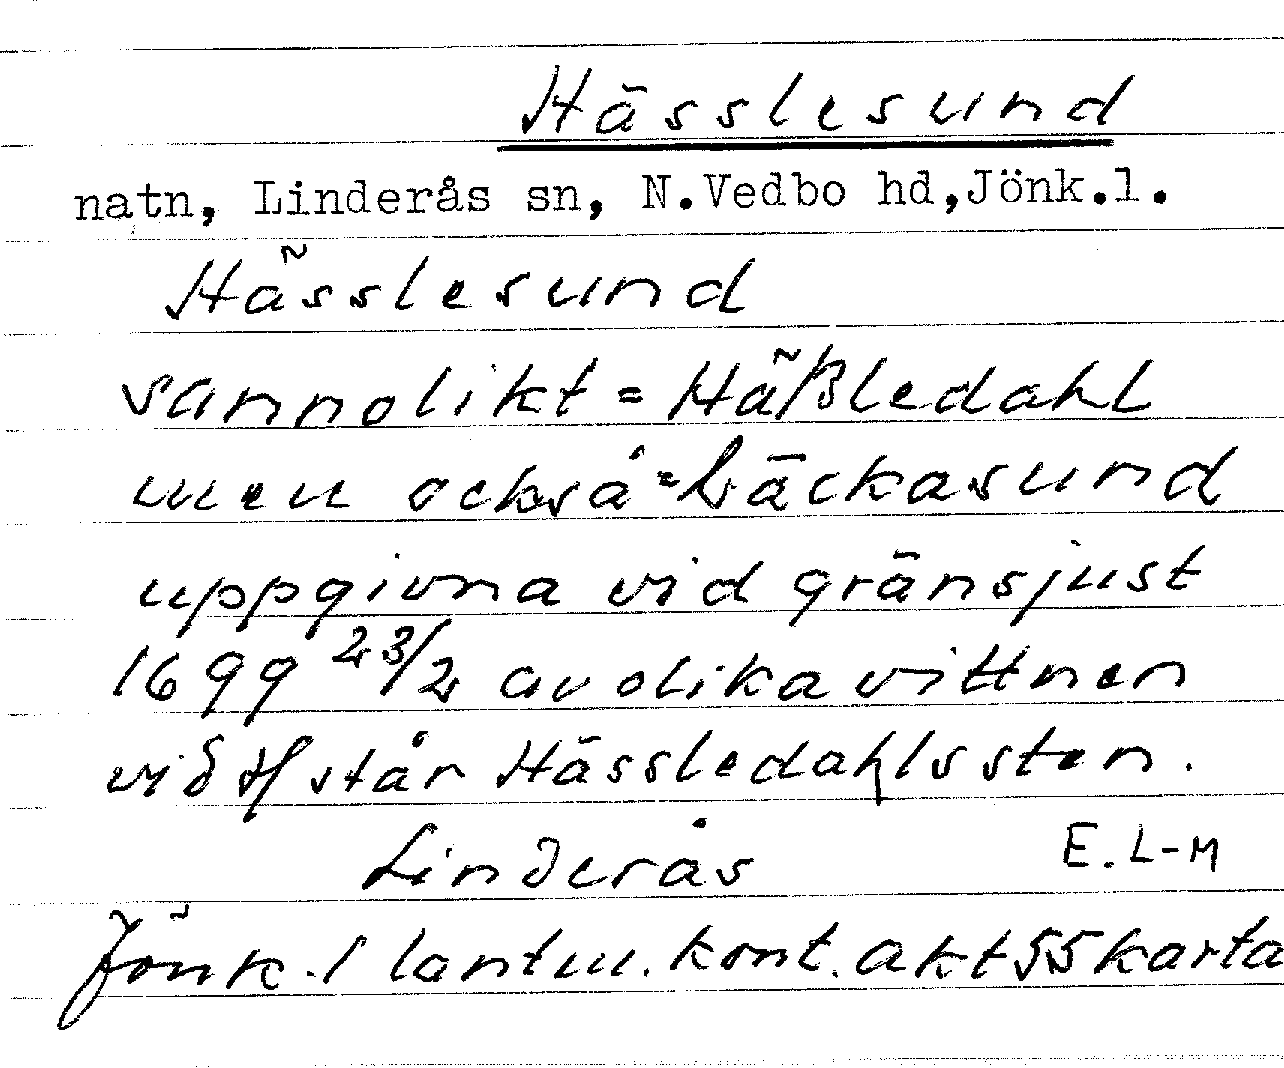 Hässlesund
natn, Linderås sn, N.Vedbo hd,Jönk.l.
Hässlesund
sannolikt = Häßledahl
men också = Läckasund
uppgivna vid gränsjust
1699 23/2 av olika vittnen
vid står Hässledahlssten.
Linderås E.L-M
Jönk.l lantm. kont. akt 55 karta